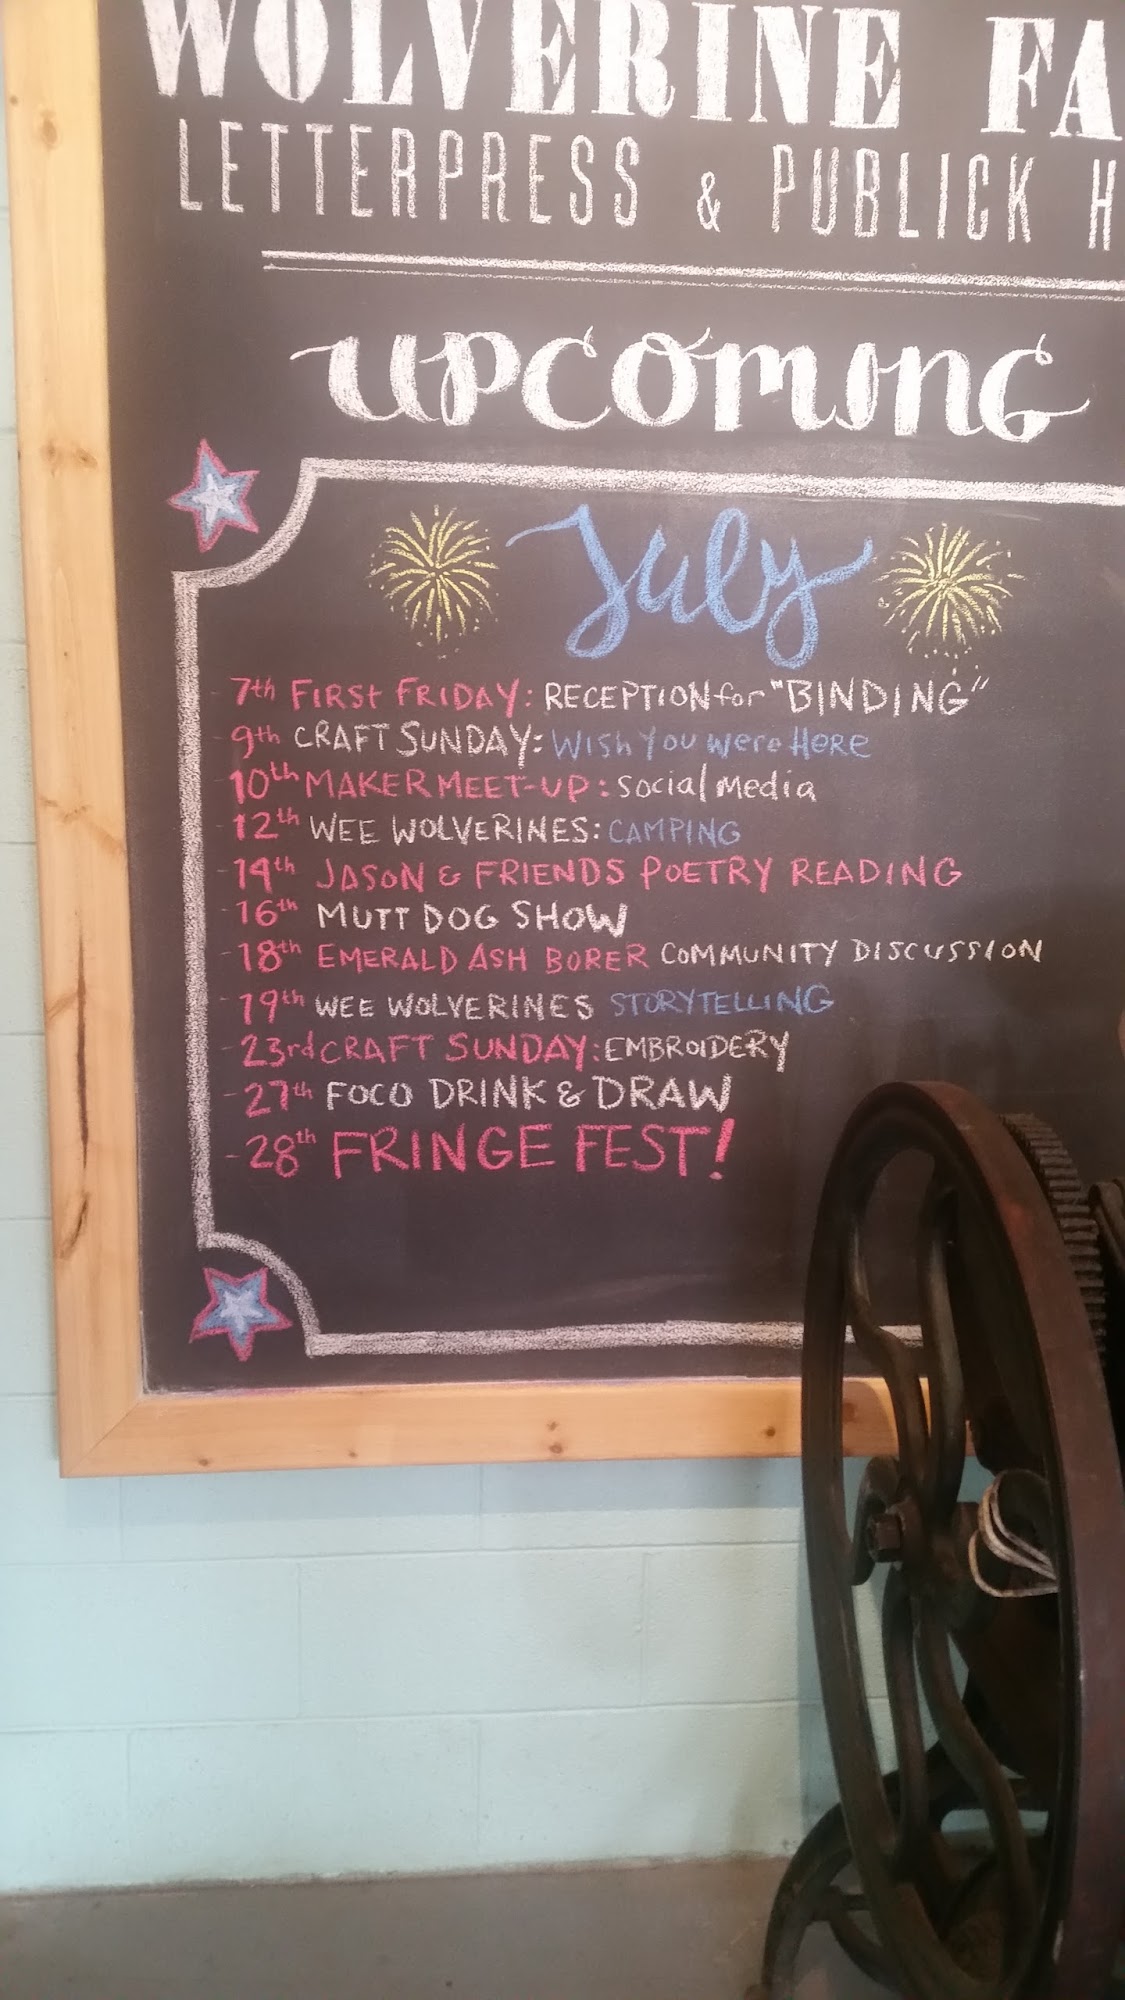 WOLVERINE FA
LETTERPRESS & PUBLICK H
UPCOMING
July
- 7th FIRST FRIDAY: RECEPTION for "BINDING"
- 9th CRAFT SUNDAY: Wish You Were HERE
- 10th MAKER MEET-UP: Social Media
- 12th WEE WOLVERINES: CAMPING
- 14th JASON & FRIENDS POETRY READING
- 16th MUTT DOG SHOW
- 18th EMERALD ASH BORER COMMUNITY DISCUSSION
- 19th WEE WOLVERINES STORYTELLING
- 23rd CRAFT SUNDAY: EMBROIDERY
- 27th FOCO DRINK & DRAW
- 28th FRINGE FEST!